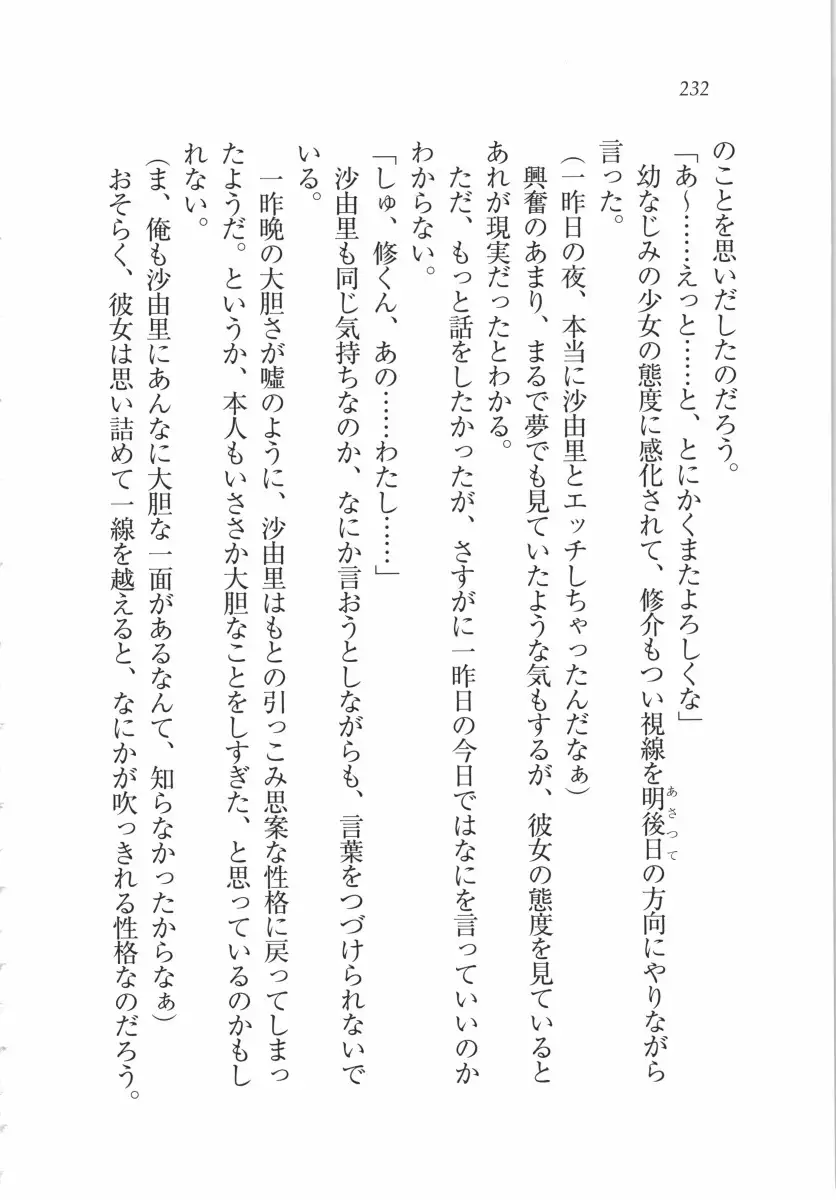 232
のことを思いだしたのだろう。
「あ～……えっと……と、とにかくまたよろしくな」
幼なじみの少女の態度に感化されて、修介もつい視線を明後日の方向にやりながら
あさって
言った。
(一昨日の夜、本当に沙由里とエッチしちゃったんだなぁ)
興奮のあまり、まるで夢でも見ていたような気もするが、彼女の態度を見ていると
あれが現実だったとわかる。
ただ、もっと話をしたかったが、さすがに一昨日の今日ではなにを言っていいのか
わからない。
「しゅ、修くん、あの……わたし……」
沙由里も同じ気持ちなのか、なにか言おうとしながらも、言葉をつづけられないで
いる。
一昨晩の大胆さが嘘のように、沙由里はもとの引っこみ思案な性格に戻ってしまっ
たようだ。というか、本人もいささか大胆なことをしすぎた、と思っているのかもし
れない。
(ま、俺も沙由里にあんなに大胆な一面があるなんて、知らなかったからなぁ)
おそらく、彼女は思い詰めて一線を越えると、なにかが吹っきれる性格なのだろう。